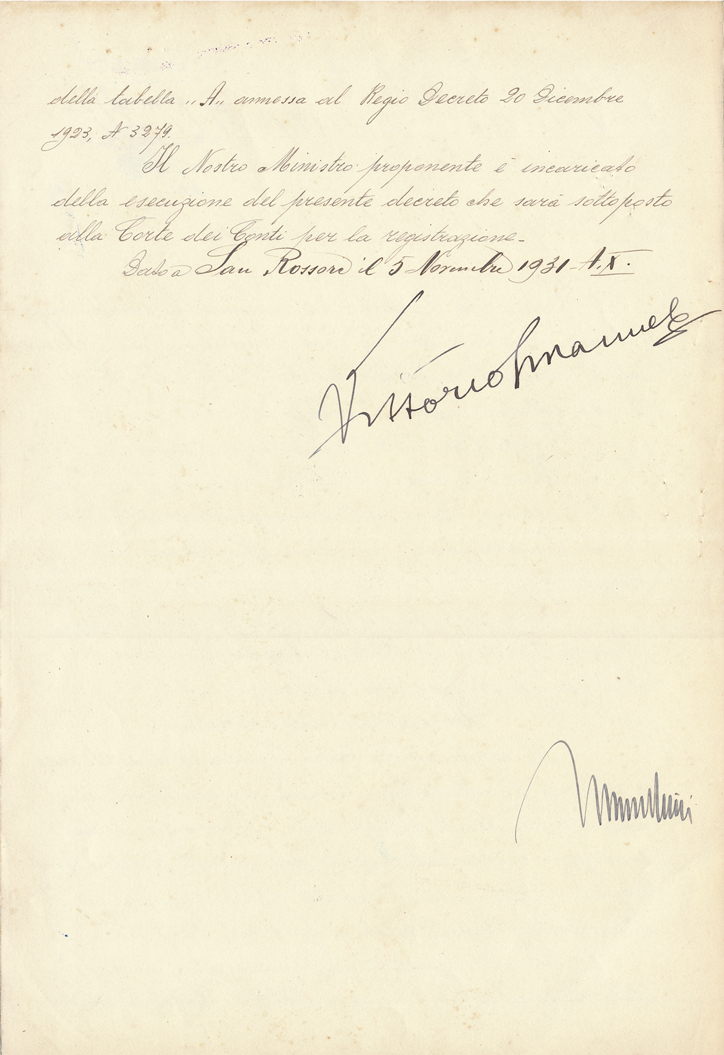 della tabella „A„ annessa al Regio Decreto 20 Dicembre
1923, N 3279.
Il Nostro Ministro proponente è incaricato
della esecuzione del presente decreto che sarà sottoposto
alla Corte dei Conti per la registrazione.-
Dato a San Rossore il 5 Novembre 1931-A.X.
Vittorio Emanuele
Mussolini